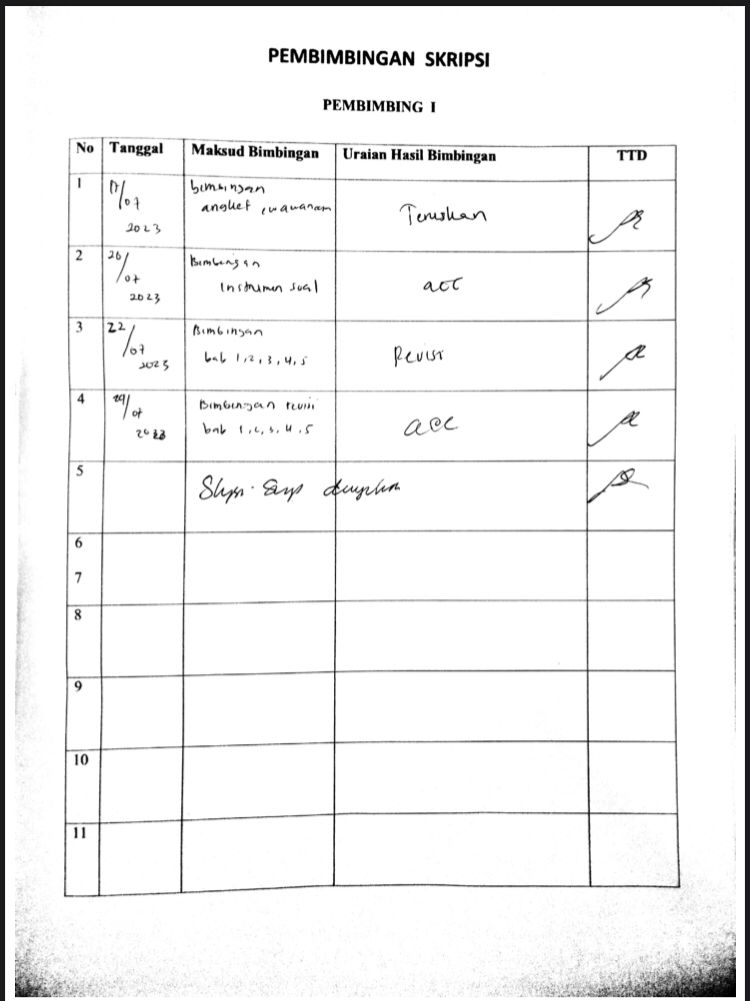 PEMBIMBINGAN SKRIPSI
PEMBIMBING I
No Tanggal Maksud Bimbingan Uraian Hasil Bimbingan TTD
1 17/07 2023 bimbingan angket, wawancara Teruskan
2 20/07 2023 Bimbingan instrumen soal acc
3 22/07 2023 Bimbingan bab 1,2,3,4,5 Revisi
4 29/07 2023 Bimbingan revisi bab 1,2,3,4,5 acc
5
6
7
8
9
10
11